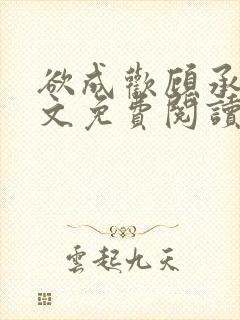 欲成歡顧承
文免費閱讀
雲起九天